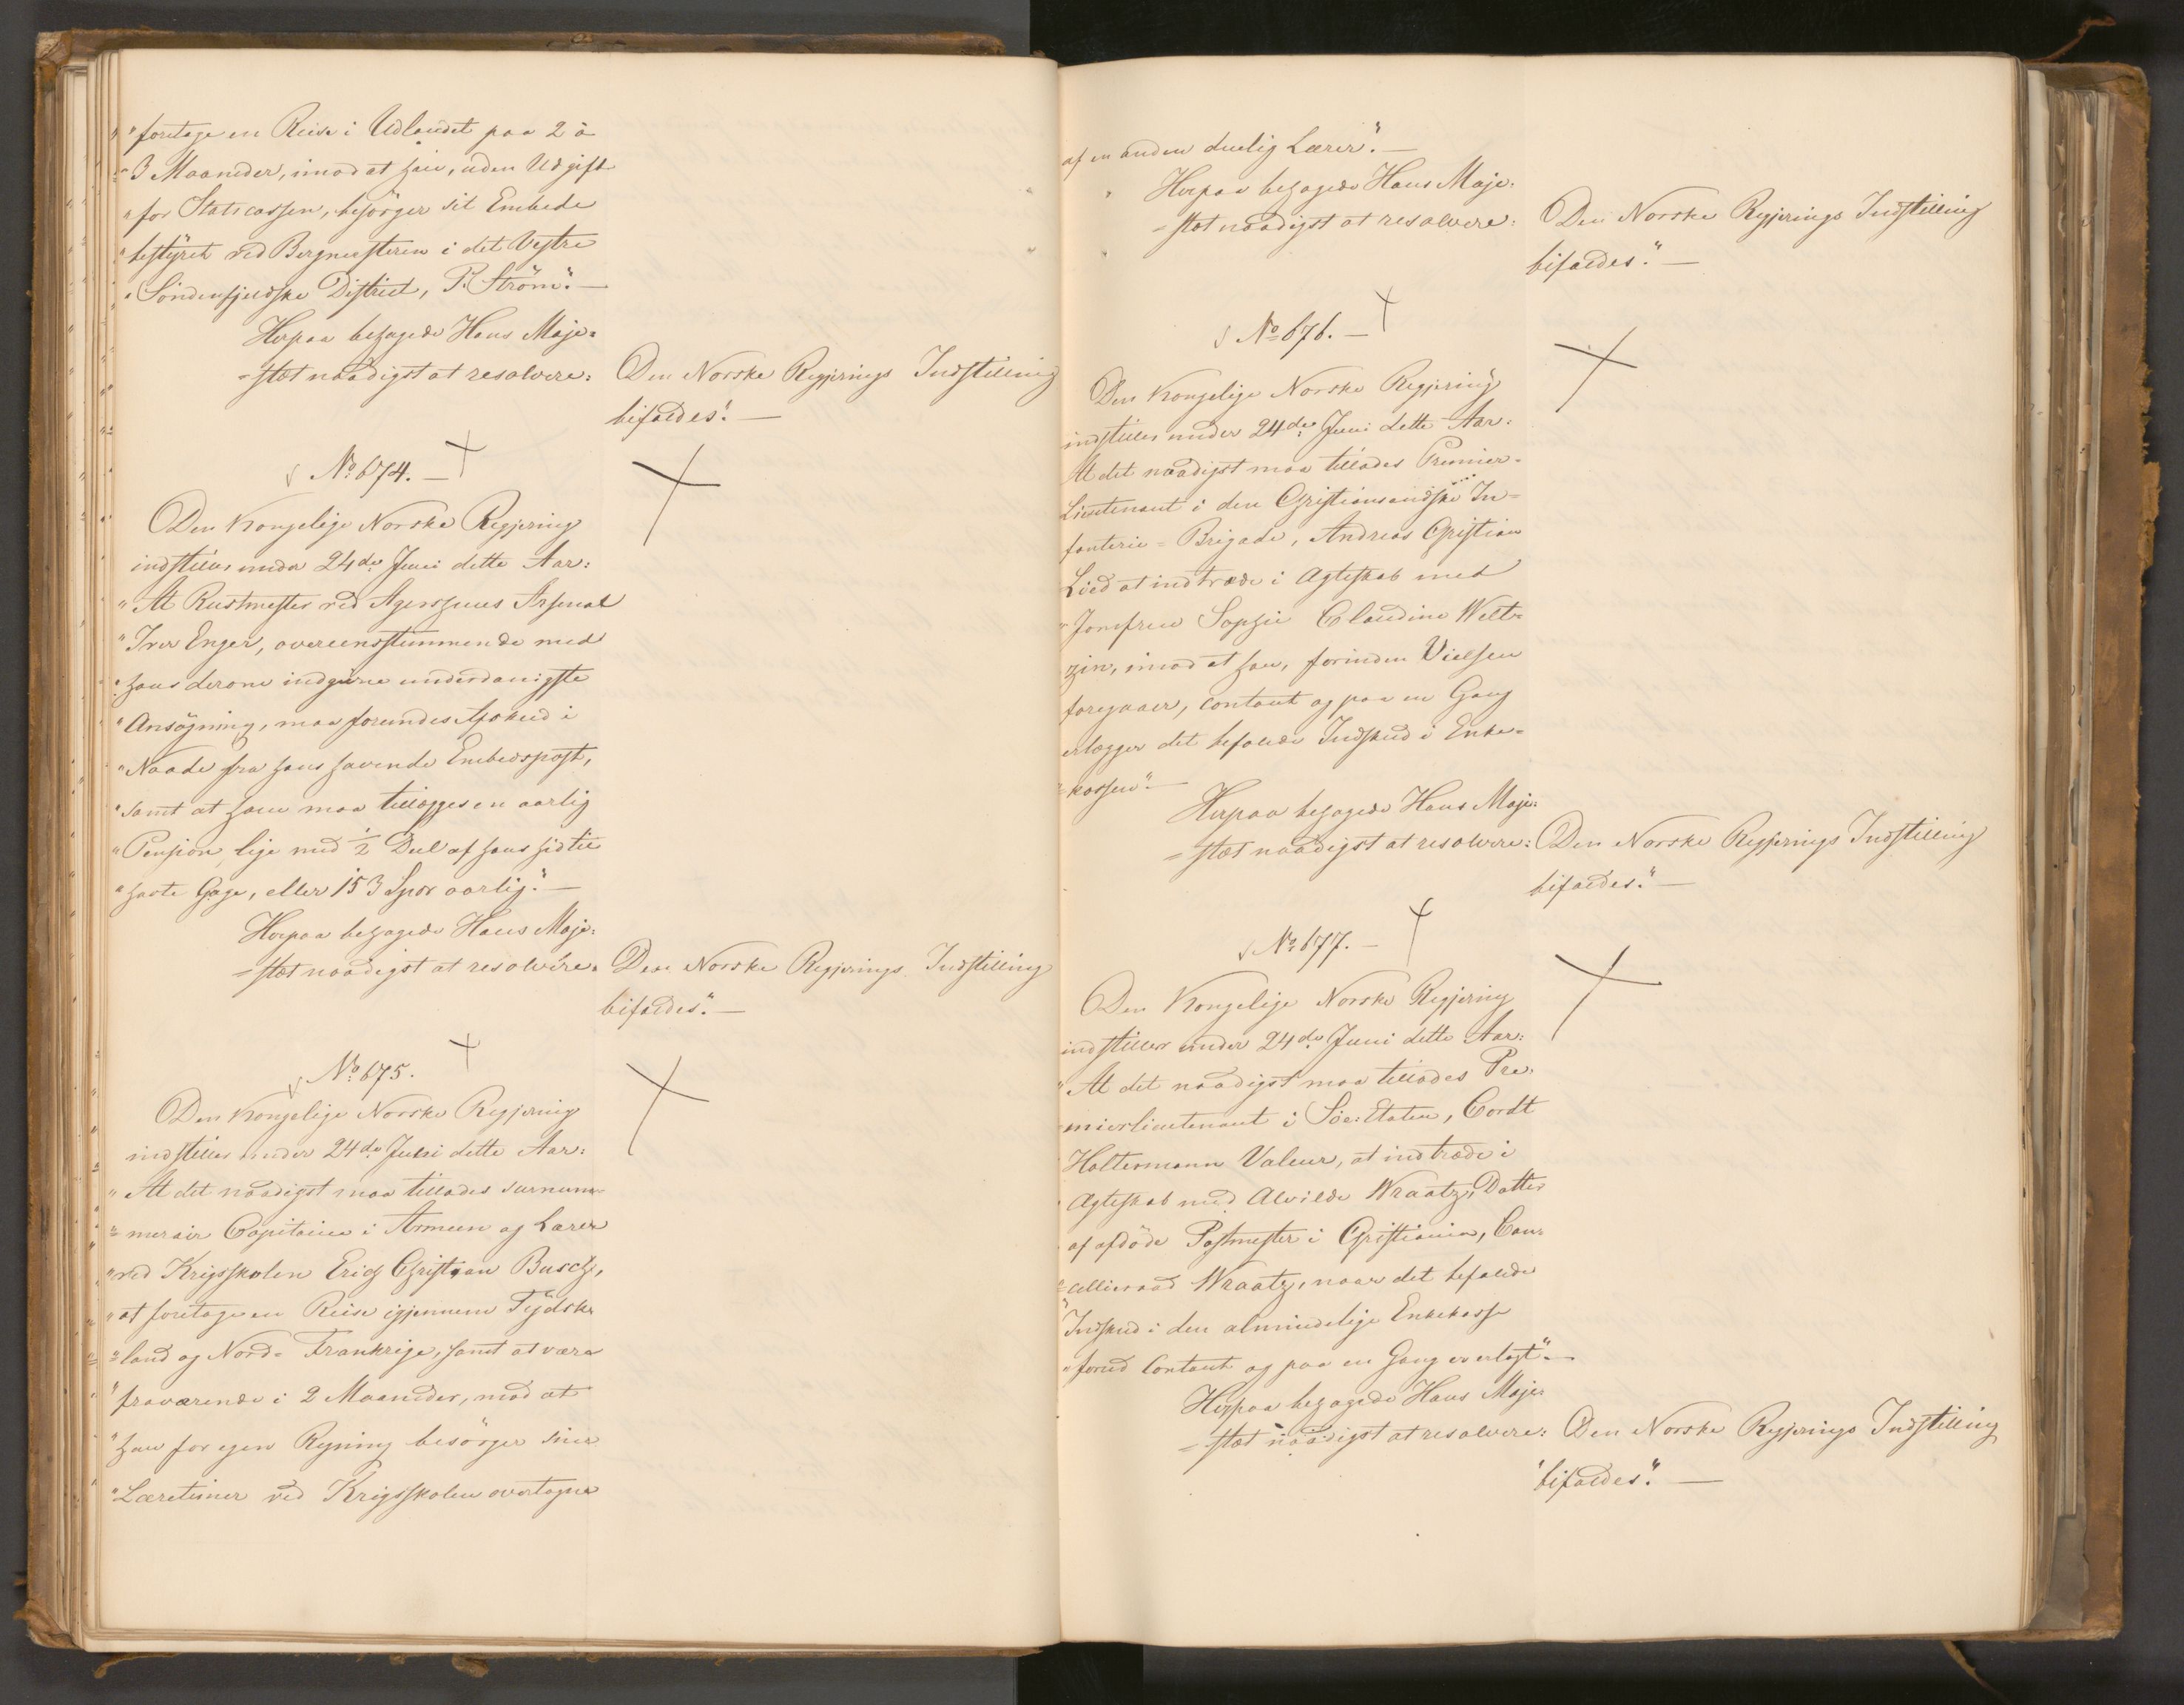 "foretage en Reise i Udlandet paa 2 à
"3 Maaneder, imod at han, uden Udgift
"for Statscassen, besørger sit Embede
"bestyret ved Bergmesteren i det Vestre
"Söndenfjeldske District, P. Ström." —
Herpaa behagede Hans Maje=
=stæt naadigst at resolvere: Den Norske Regjerings Indstilling
bifaldes." —
No 674. —
Den Kongelige Norske Regjering
indstiller under 24de Juni dette Aar:
"At Rustmester ved Agershuus Arsenal
"Iver Enger, overeensstemmende med
"hans derom indgivne underdanigste
"Ansögning, maa forundes Afsked i
"Naade fra hans havende Embedspost,
"samt at ham maa tillægges en aarlig
"Pension lige med 1/2 Deel af hans hidtil
"havte Gage, eller 153 Spd aarlig." —
Herpaa behagede Hans Maje=
=stæt naadigst at resolvere: Den Norske Regjerings Indstilling
bifaldes." —
No 675.
Den Kongelige Norske Regjering
indstiller under 24de Juni dette Aar:
"At det naadigst maa tillades surnum=
"=merair Capitaine i Armeen og Lærer
"ved Krigsskolen Erich Christian Busch,
"at foretage en Reise igjennem Tydsk=
"=land og Nord= Frankrige, samt at være
"fraværende i 2 Maaneder, mod at
"han for egen Regning besörger sine
"Læretimer ved Krigsskolen overtagne
af en anden duelig Lærer". —
Herpaa behagede Hans Maje=
=stæt naadigst at resolvere: Den Norske Regjerings Indstilling
bifaldes." —
No 676. —
Den Kongelige Norske Regjering
indstiller under 24de Juni dette Aar:
At det naadigst maa tillades Premier=
Lieutenant i den Christiansandske In=
fanterie=Brigade, Andreas Christian
Lied at indtræde i Ægteskab med
"Jomfrue Sophie Claudine Welt=
zin, imod at han, forinden Vielsen
foregaaer, contant og paa en Gang
erlægger det befalede Indskud i Enke=
=kassen" —
Herpaa behagede Hans Maje=
=stæt naadigst at resolvere: Den Norske Regjerings Indstilling
bifaldes." —
No 677. —
Den Kongelige Norske Regjering
indstiller under 24de Juni dette Aar:
"At det naadigst maa tillades Pre=
=mierlieutenant i Söe=Etaten, Cordt
Holtermann Valeur, at indtræde i
Ægteskab med Alvilde Wraatz, Datter
af afdöde Postmester i Christiania, Can=
=celliraad Wraatz, naar det befalede
"Indskud i den almindelige Enkekasse
"forud contant og paa en Gang er erlagt" —
Herpaa behagede Hans Maje=
=stæt naadigst at resolvere: Den Norske Regjerings Indstilling
"bifaldes". —